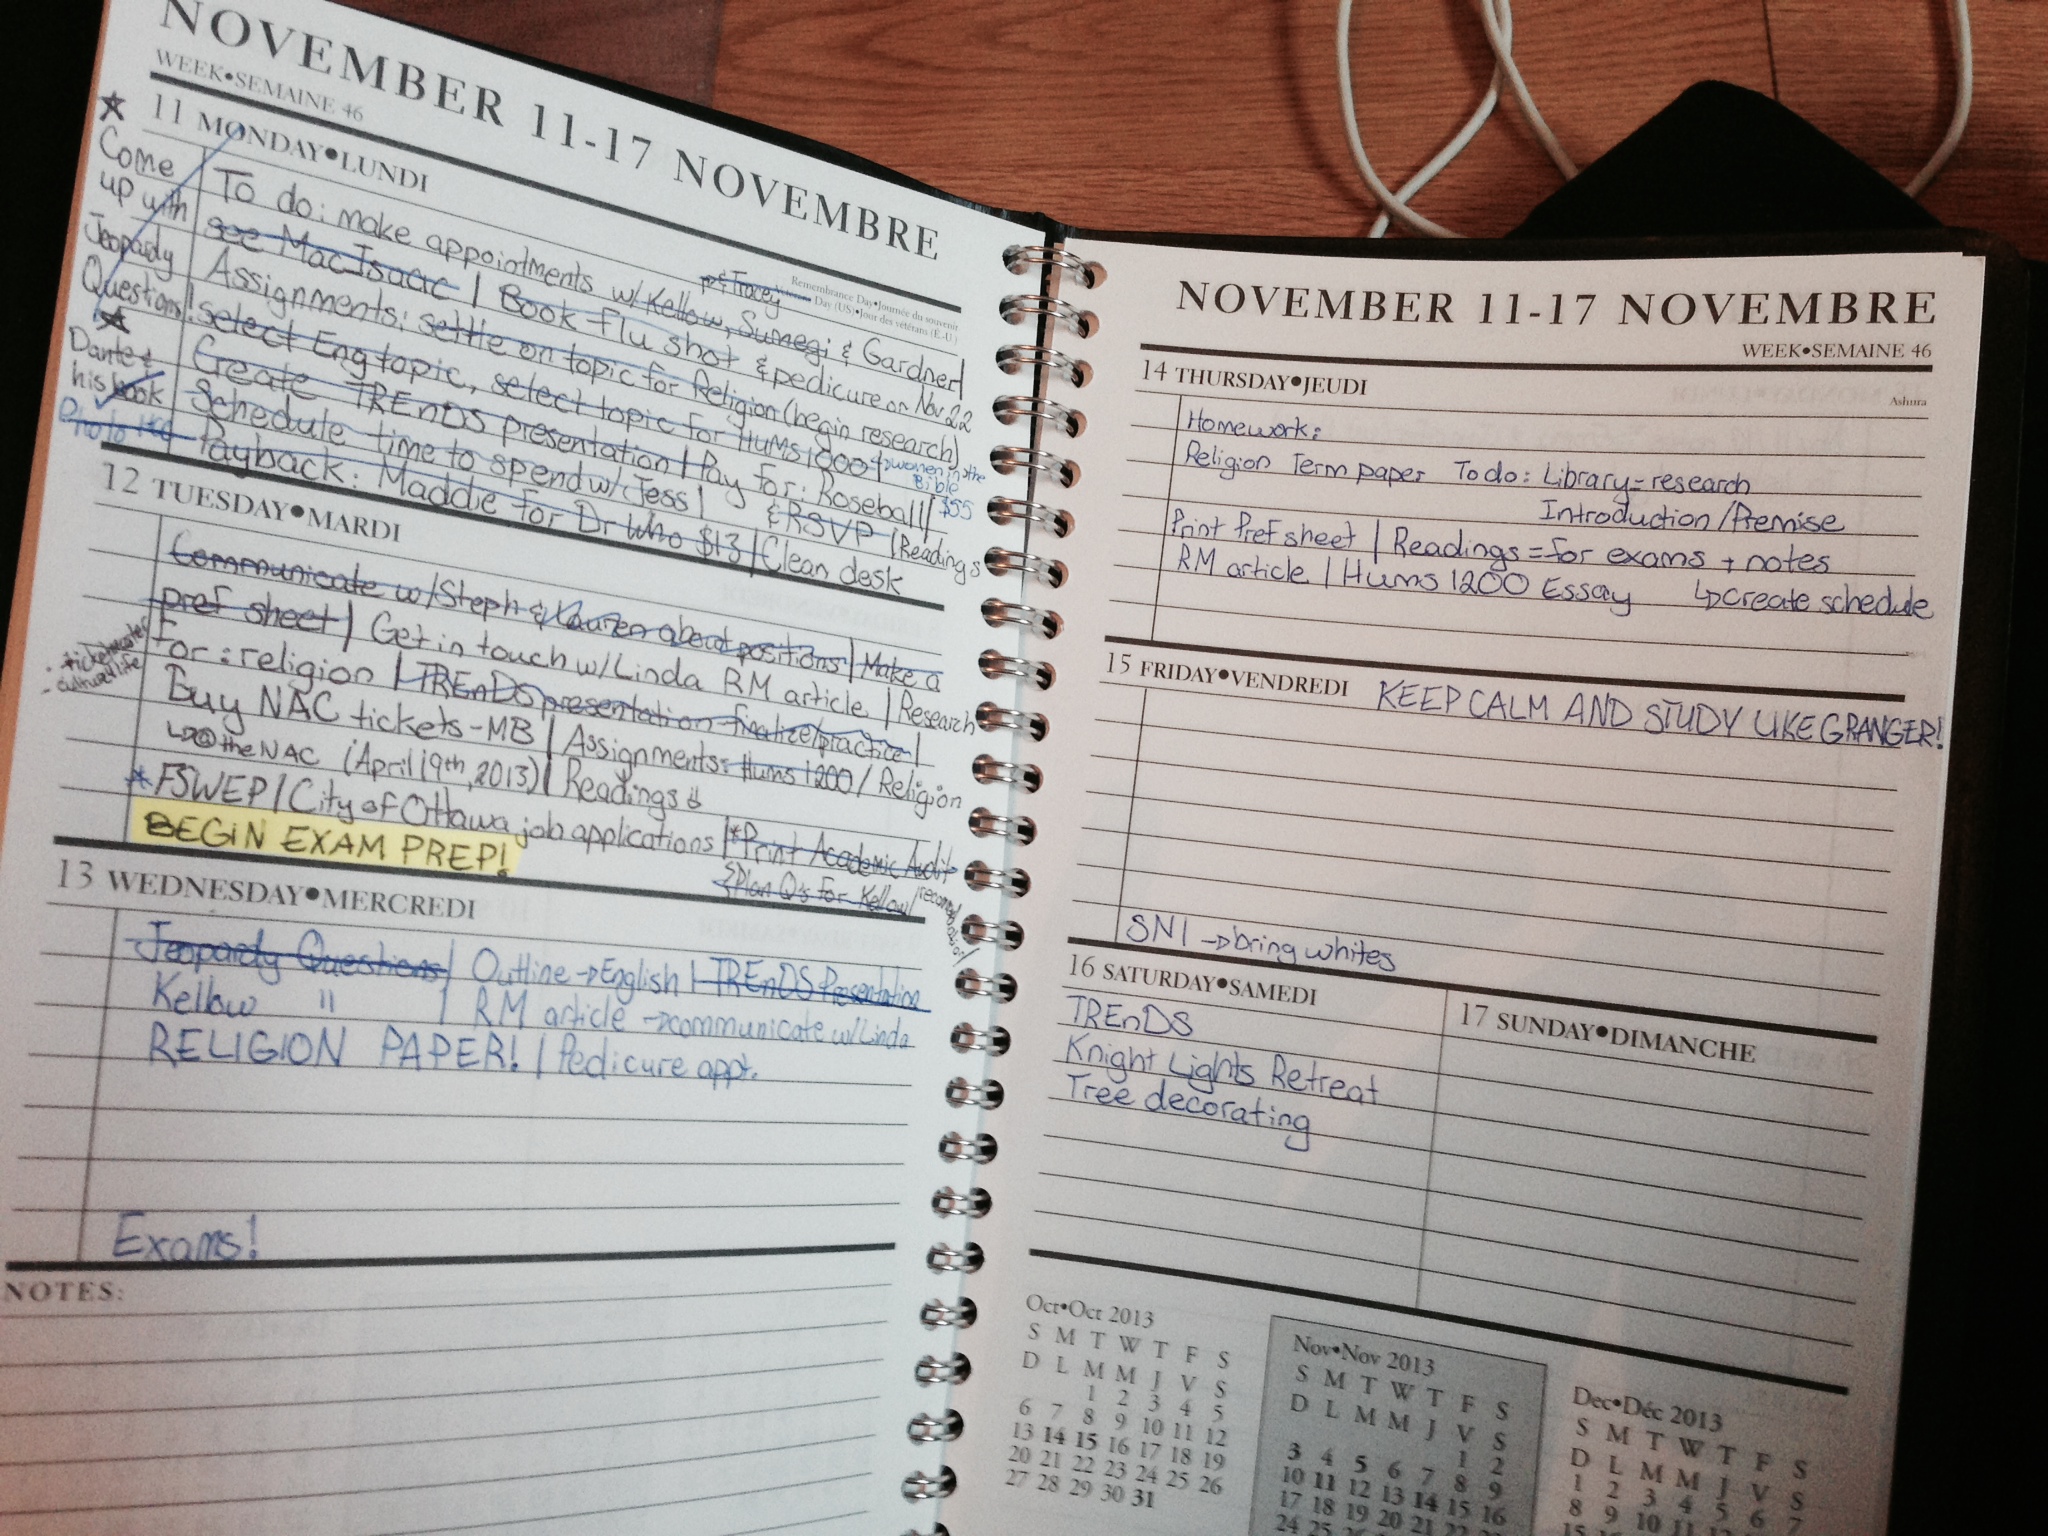 NOVEMBER 11-17 NOVEMBRE
WEEK•SEMAINE 46
11 MONDAY•LUNDI
Remembrance Day•Journée du souvenir
Day (US)•Jour des vétérans (É.-U.)
Come
up with
Jeopardy
Questions!
Dante &
his book
& Tracey
To do: make appointments w/ Kellow, Sumegi & Gardner|
see MacIsaac | Book flu shot & pedicure on Nov 22
Assignments: settle on topic for Religion (begin research)
select Eng topic, select topic for HUMS 1000 ↳women in the
Bible
Create TREnDS presentation | Pay For: Roseball| $55
Schedule time to spend w/ Jess | & RSVP (Readings
Payback: Maddie for Dr Who $13 | Clean desk
12 TUESDAY•MARDI
Communicate w/ Steph & Lauren about positions | Make a
pref sheet | Get in touch w/ Linda RM article | Research
For: religion | TREnDS presentation finalize/practice |
- ticketmaster
- cultured life
Buy NAC tickets - MB | Assignments: Hums 1200 / Religion
↳@ the NAC (April 19th, 2013) | Readings
*FSWEP / City of Ottawa job applications | *Print Academic Audit
BEGIN EXAM PREP!
& Plan Q's for Kellow/
13 WEDNESDAY•MERCREDI
Jeopardy Questions | Outline → English | TREnDS Presentation
Kellow " | RM article → communicate w/ Linda
RELIGION PAPER! | Pedicure appt.
Exams!
NOTES:
NOVEMBER 11-17 NOVEMBRE
WEEK•SEMAINE 46
14 THURSDAY•JEUDI
Ashura
Homework:
Religion Term paper To do: Library = research
Introduction / Premise
Print Pref sheet | Readings = for exams + notes
RM article | Hums 1200 Essay ↳ create schedule
15 FRIDAY•VENDREDI KEEP CALM AND STUDY LIKE GRANGER!
SNI → bring whites
16 SATURDAY•SAMEDI
TREnDS
Knight Lights Retreat
Tree decorating
17 SUNDAY•DIMANCHE
Oct•Oct 2013
S M T W T F S
D L M M J V S
1 2 3 4 5
6 7 8 9 10 11 12
13 14 15 16 17 18 19
20 21 22 23 24 25 26
27 28 29 30 31
Nov•Nov 2013
S M T W T F S
D L M M J V S
1 2
3 4 5 6 7 8 9
10 11 12 13 14 15 16
17 18 19 20 21 22 23
24 25
Dec•Déc 2013
S M T W T F S
D L M M J V S
1 2 3 4 5 6 7
8 9 10 11 12 13
15